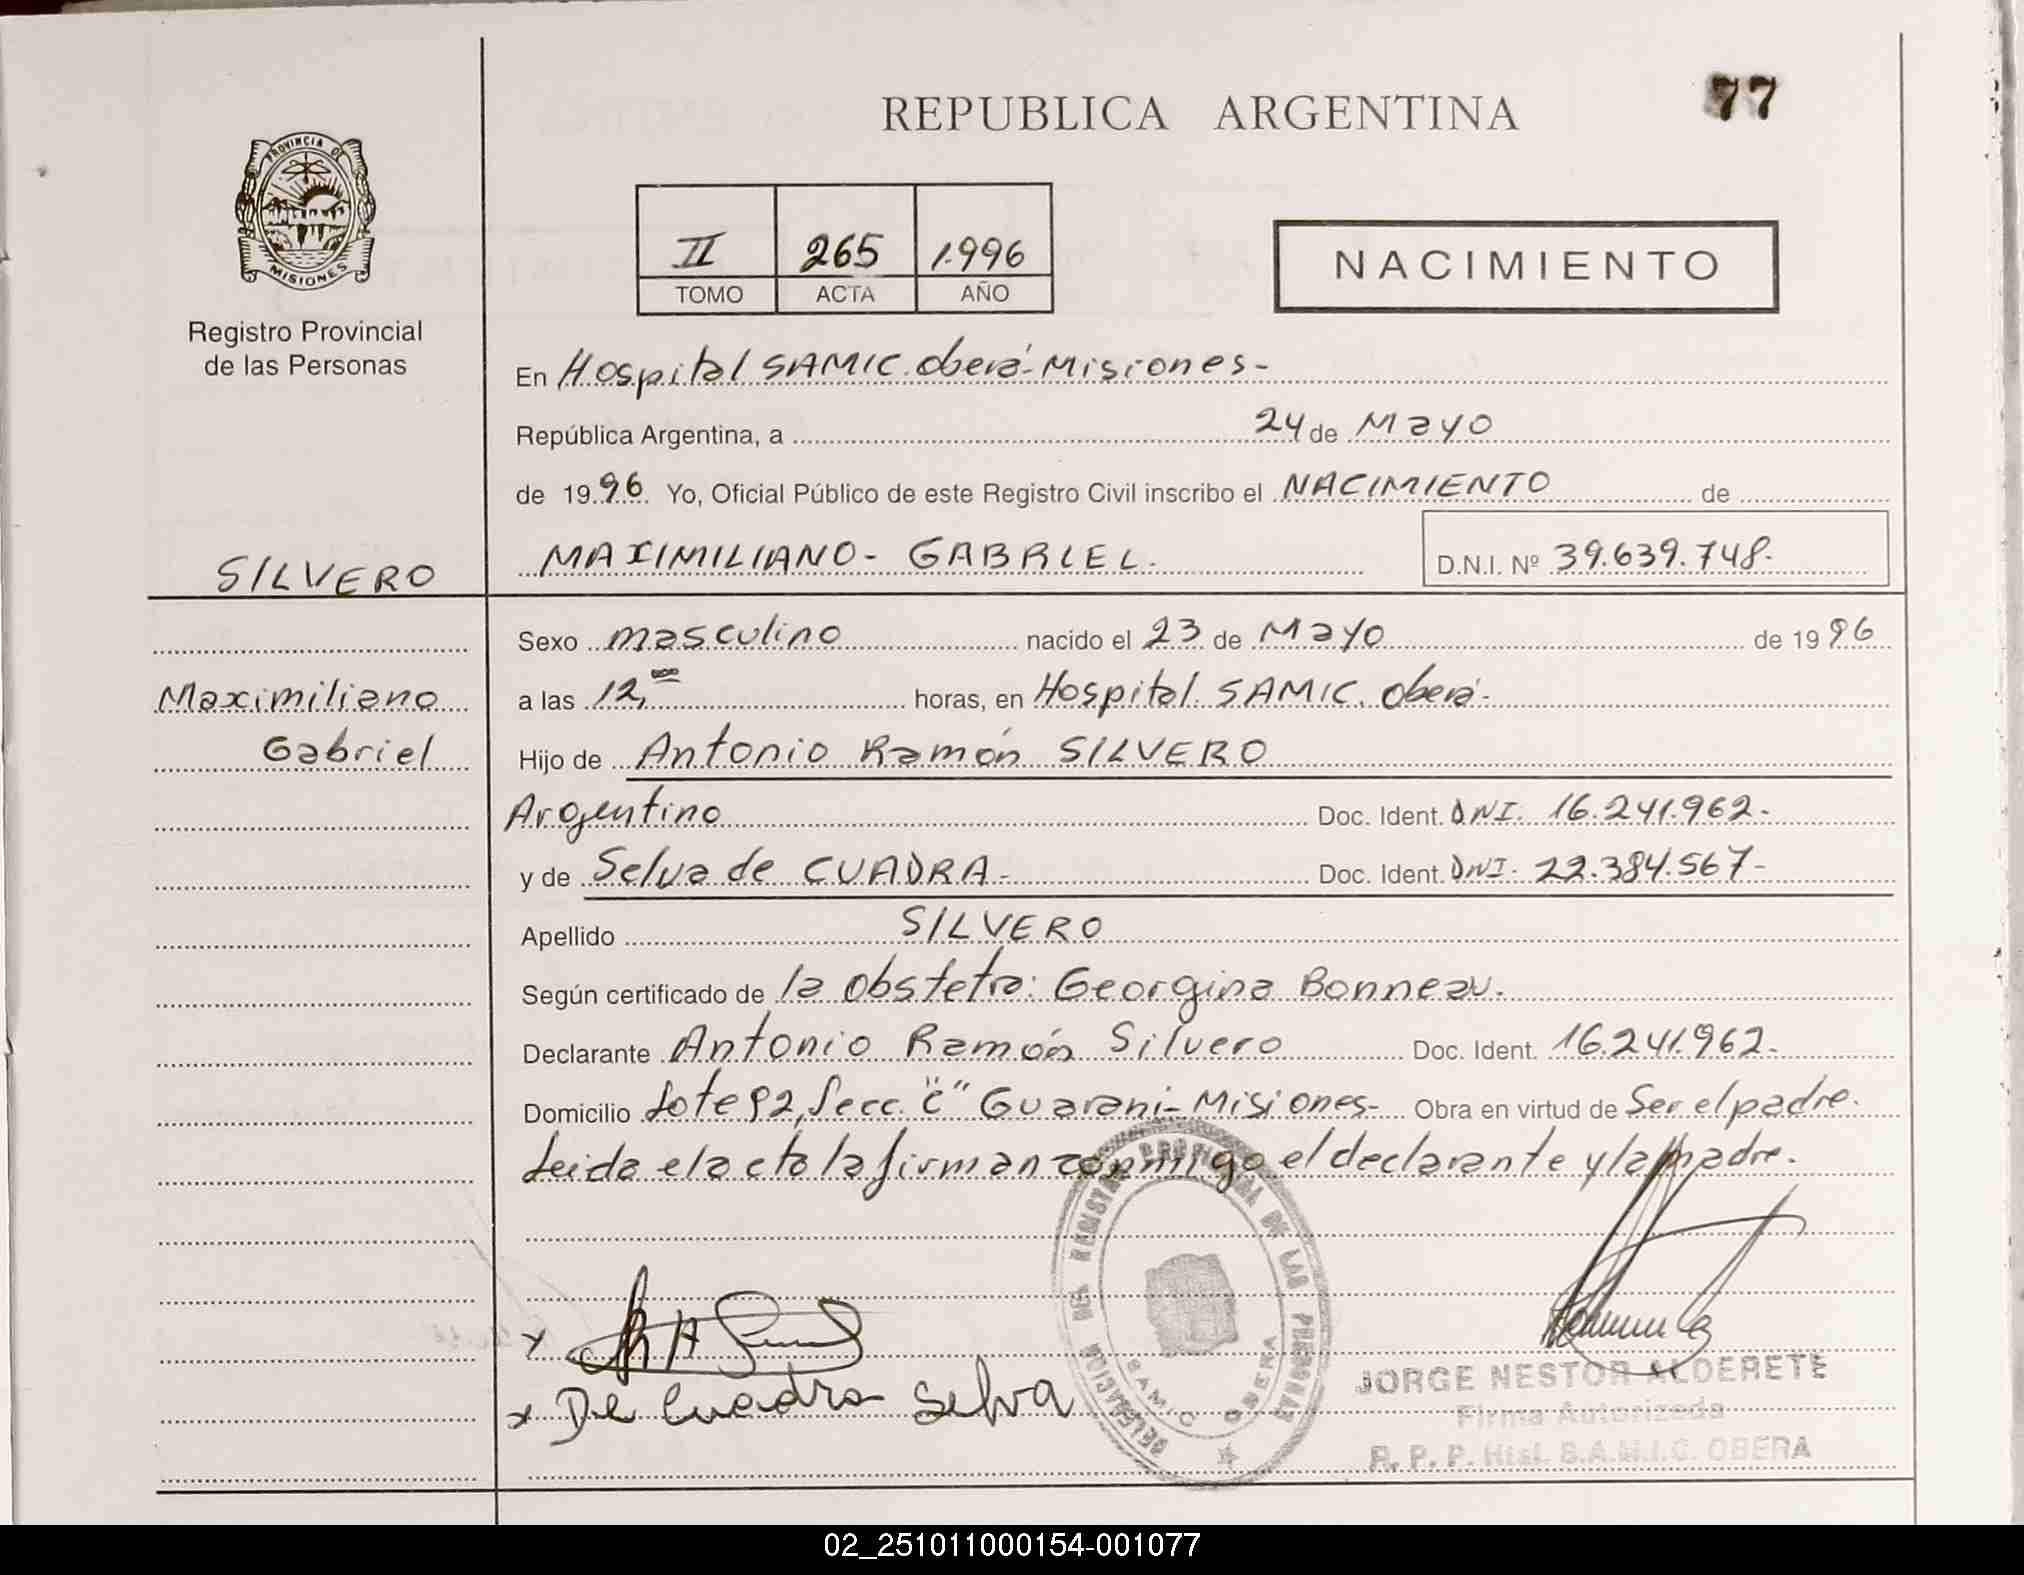 REPUBLICA ARGENTINA
77
PROVINCIA DE
MISIONES
Registro Provincial
de las Personas
II 265 1.996
TOMO ACTA AÑO
NACIMIENTO
En Hospital SAMIC. Oberá-Misiones-
República Argentina, a 24 de Mayo
de 1996 Yo, Oficial Público de este Registro Civil inscribo el NACIMIENTO de
SILVERO
MAXIMILIANO- GABRIEL.
D.N.I. Nº 39.639.748-
Maximiliano
Gabriel
Sexo masculino nacido el 23 de Mayo de 1996
a las 12,00 horas, en Hospital SAMIC. Oberá-
Hijo de Antonio Ramón SILVERO
Argentino Doc. Ident. DNI. 16.241.962-
y de Selva de CUADRA- Doc. Ident. DNI. 22.384.567-
Apellido SILVERO
Según certificado de la obstetra: Georgina Bonneau.
Declarante Antonio Ramón Silvero Doc. Ident. 16.241.962-
Domicilio Lote 92, Secc. "C" Guarani-Misiones- Obra en virtud de Ser el padre.
Leida el acta la firman conmigo el declarante y la madre.
DELEGACION DEL REGISTRO PROVINCIAL DE LAS PERSONAS
S.A.M.I.C. OBERA
De Cuadra Selva
JORGE NESTOR ALDERETE
Firma Autorizada
R. P. P. Htal. S.A.M.I.C. OBERA
02_251011000154-001077